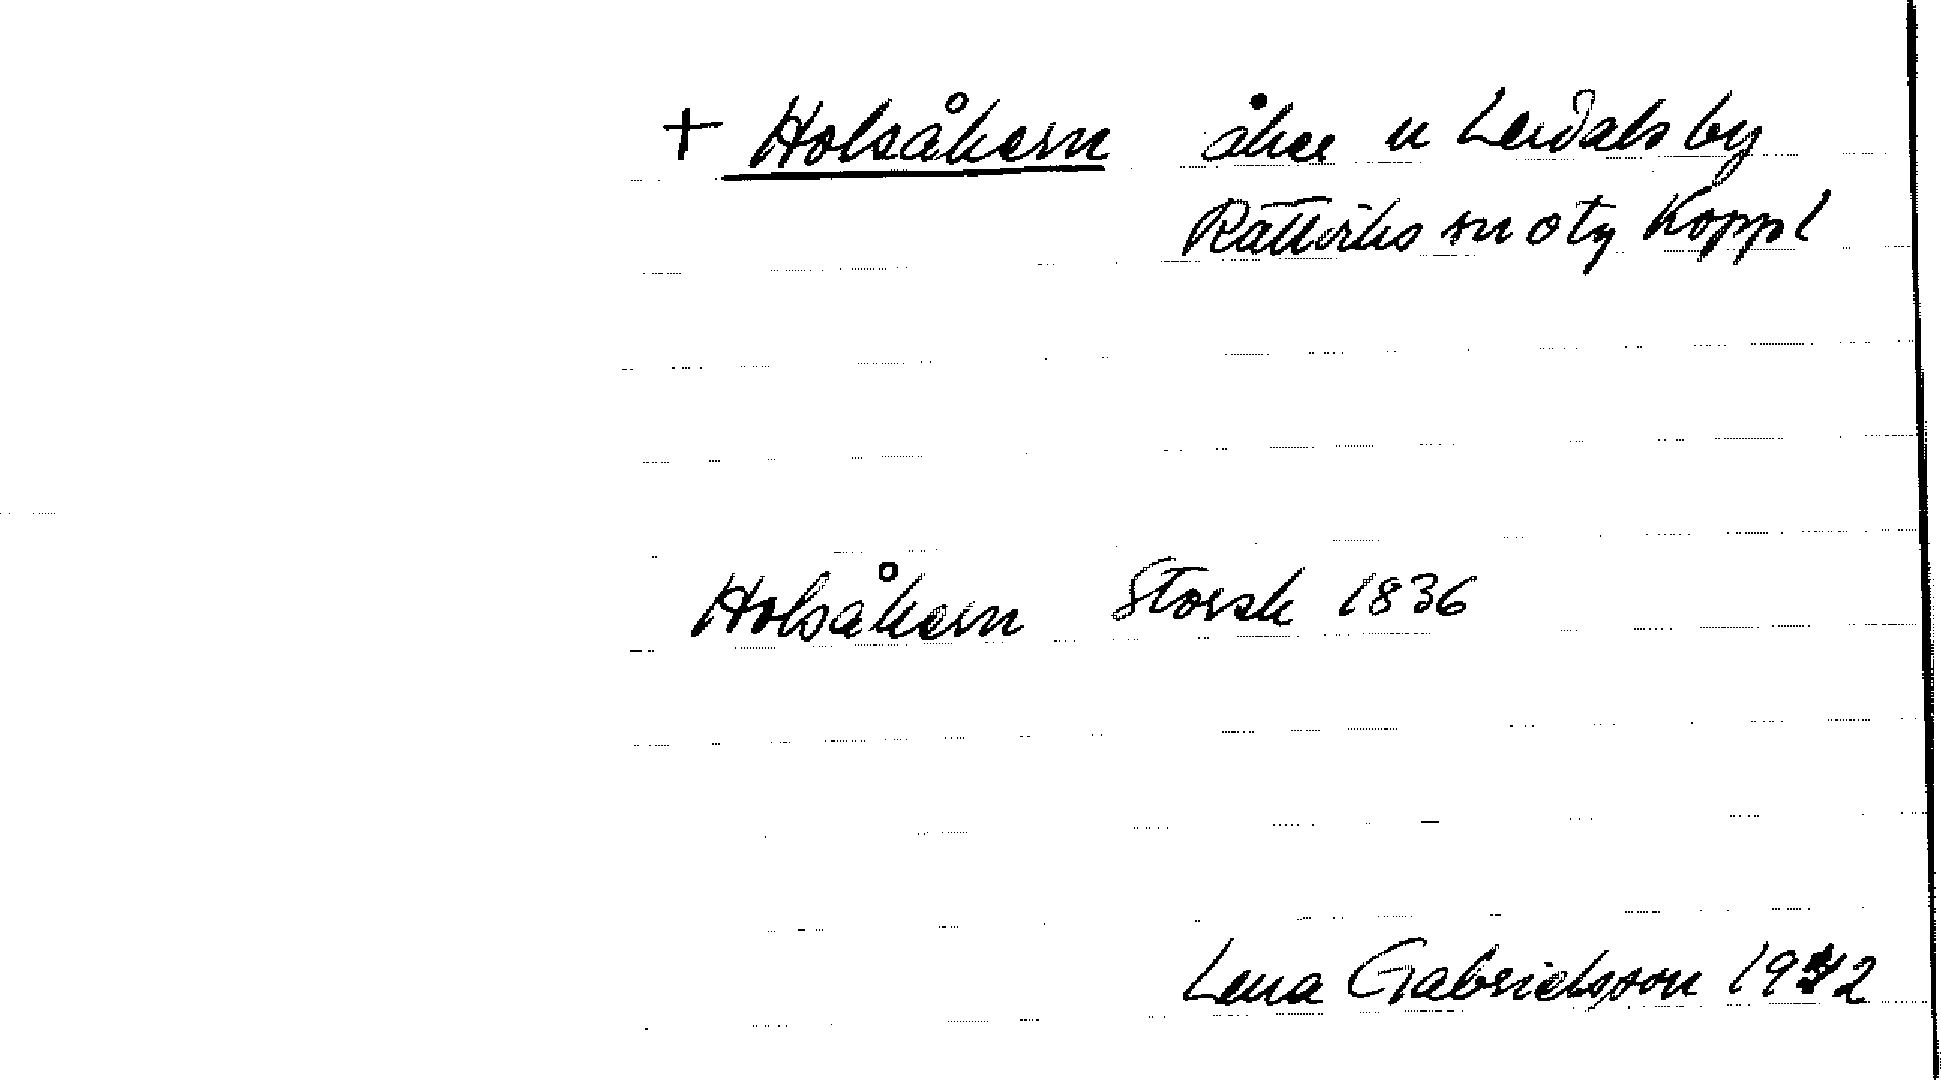 + Holsåkern åker u Lerdals by
Rättviks sn o tg Koppl
Holsåkern Storsk 1836
Lena Gabrielsson 1942